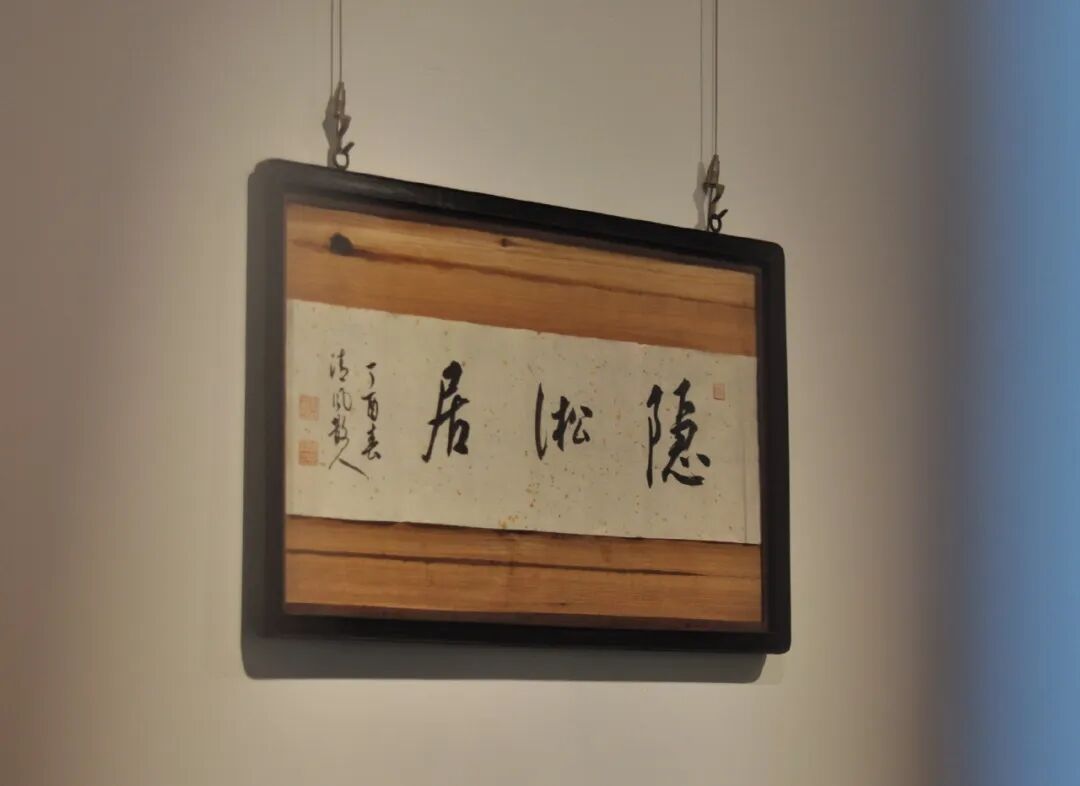 隐淞居
丁酉春
清风散人